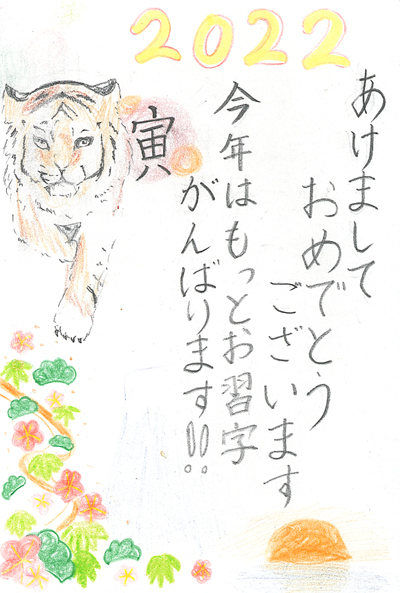 2022
あけまして
おめでとう
ございます
今年はもっとお習字
がんばります!!
寅